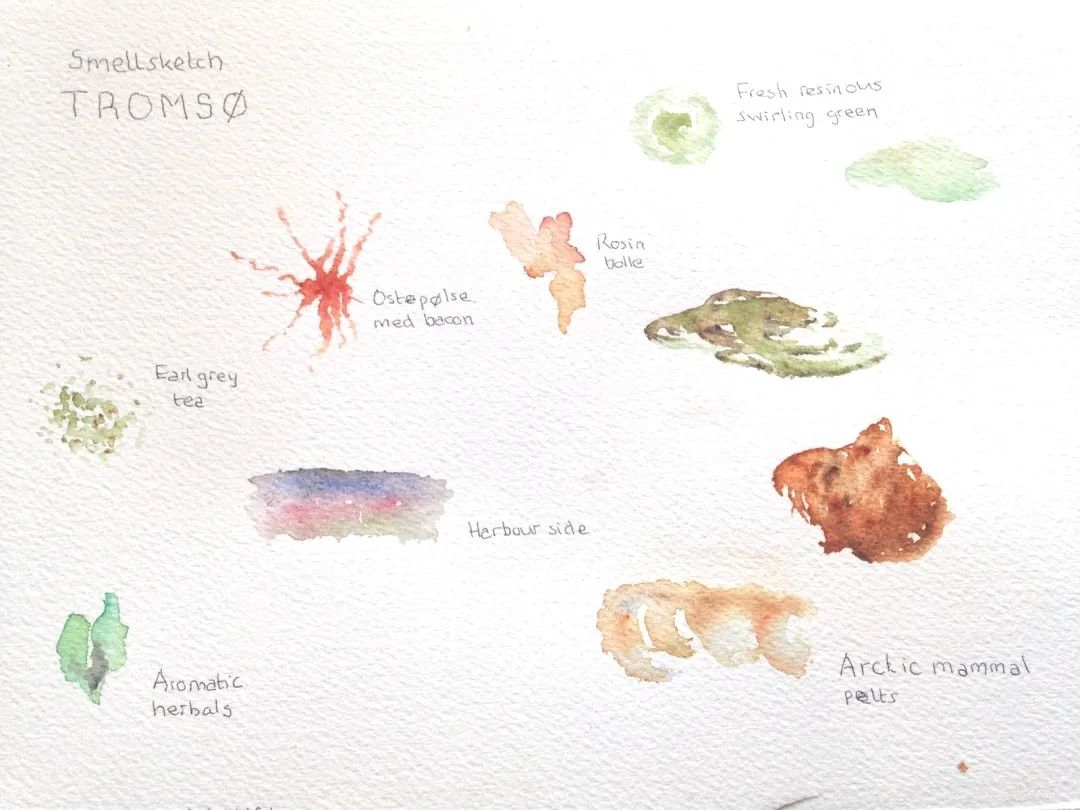 Smellsketch
TROMSØ
Fresh resinous
swirling green
Rosin
bolle
Ostepølse
med bacon
Earl grey
tea
Harbour side
Aromatic
herbals
Arctic mammal
pelts